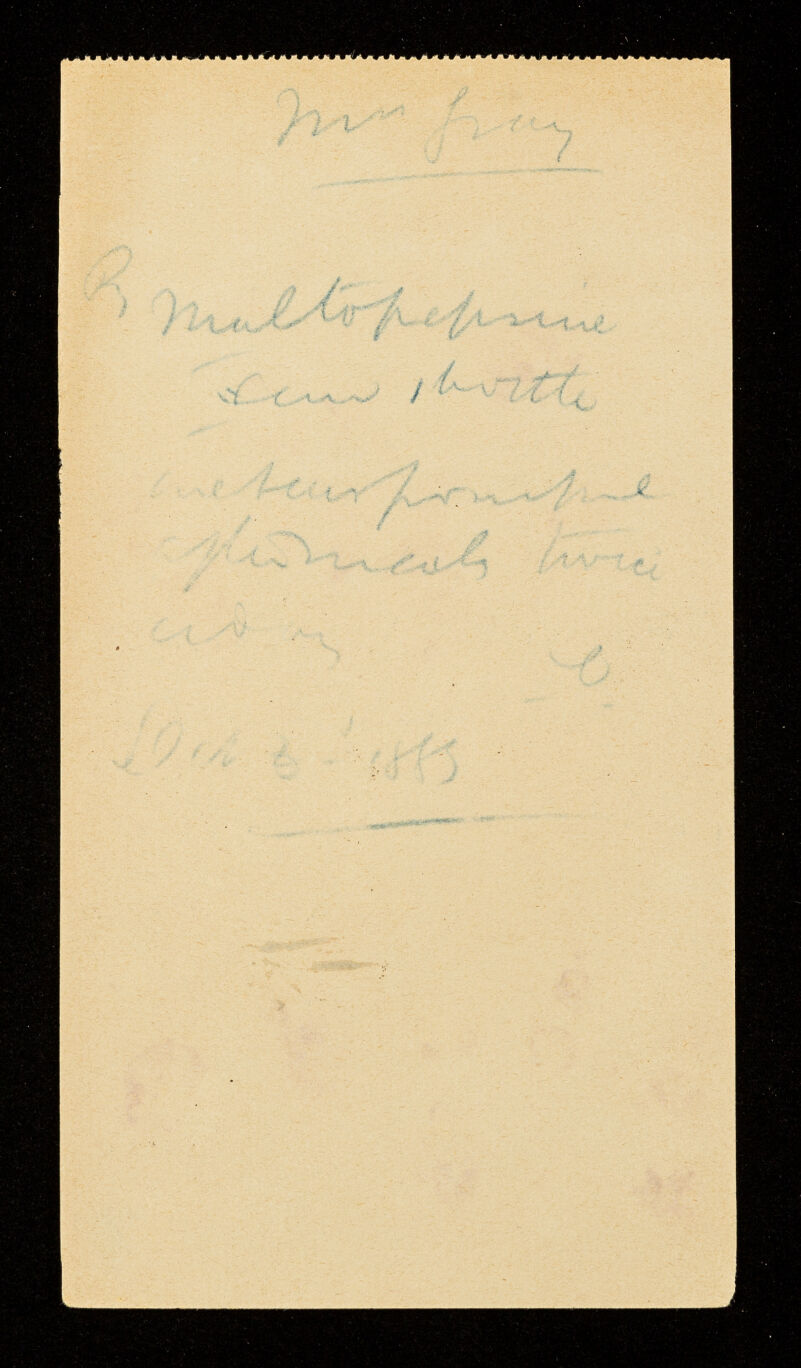 Mrs Gray
Rx Maltopepsine
1 bottle
a teaspoonful
after meals twice
a day
C.
Oct 3d 1883